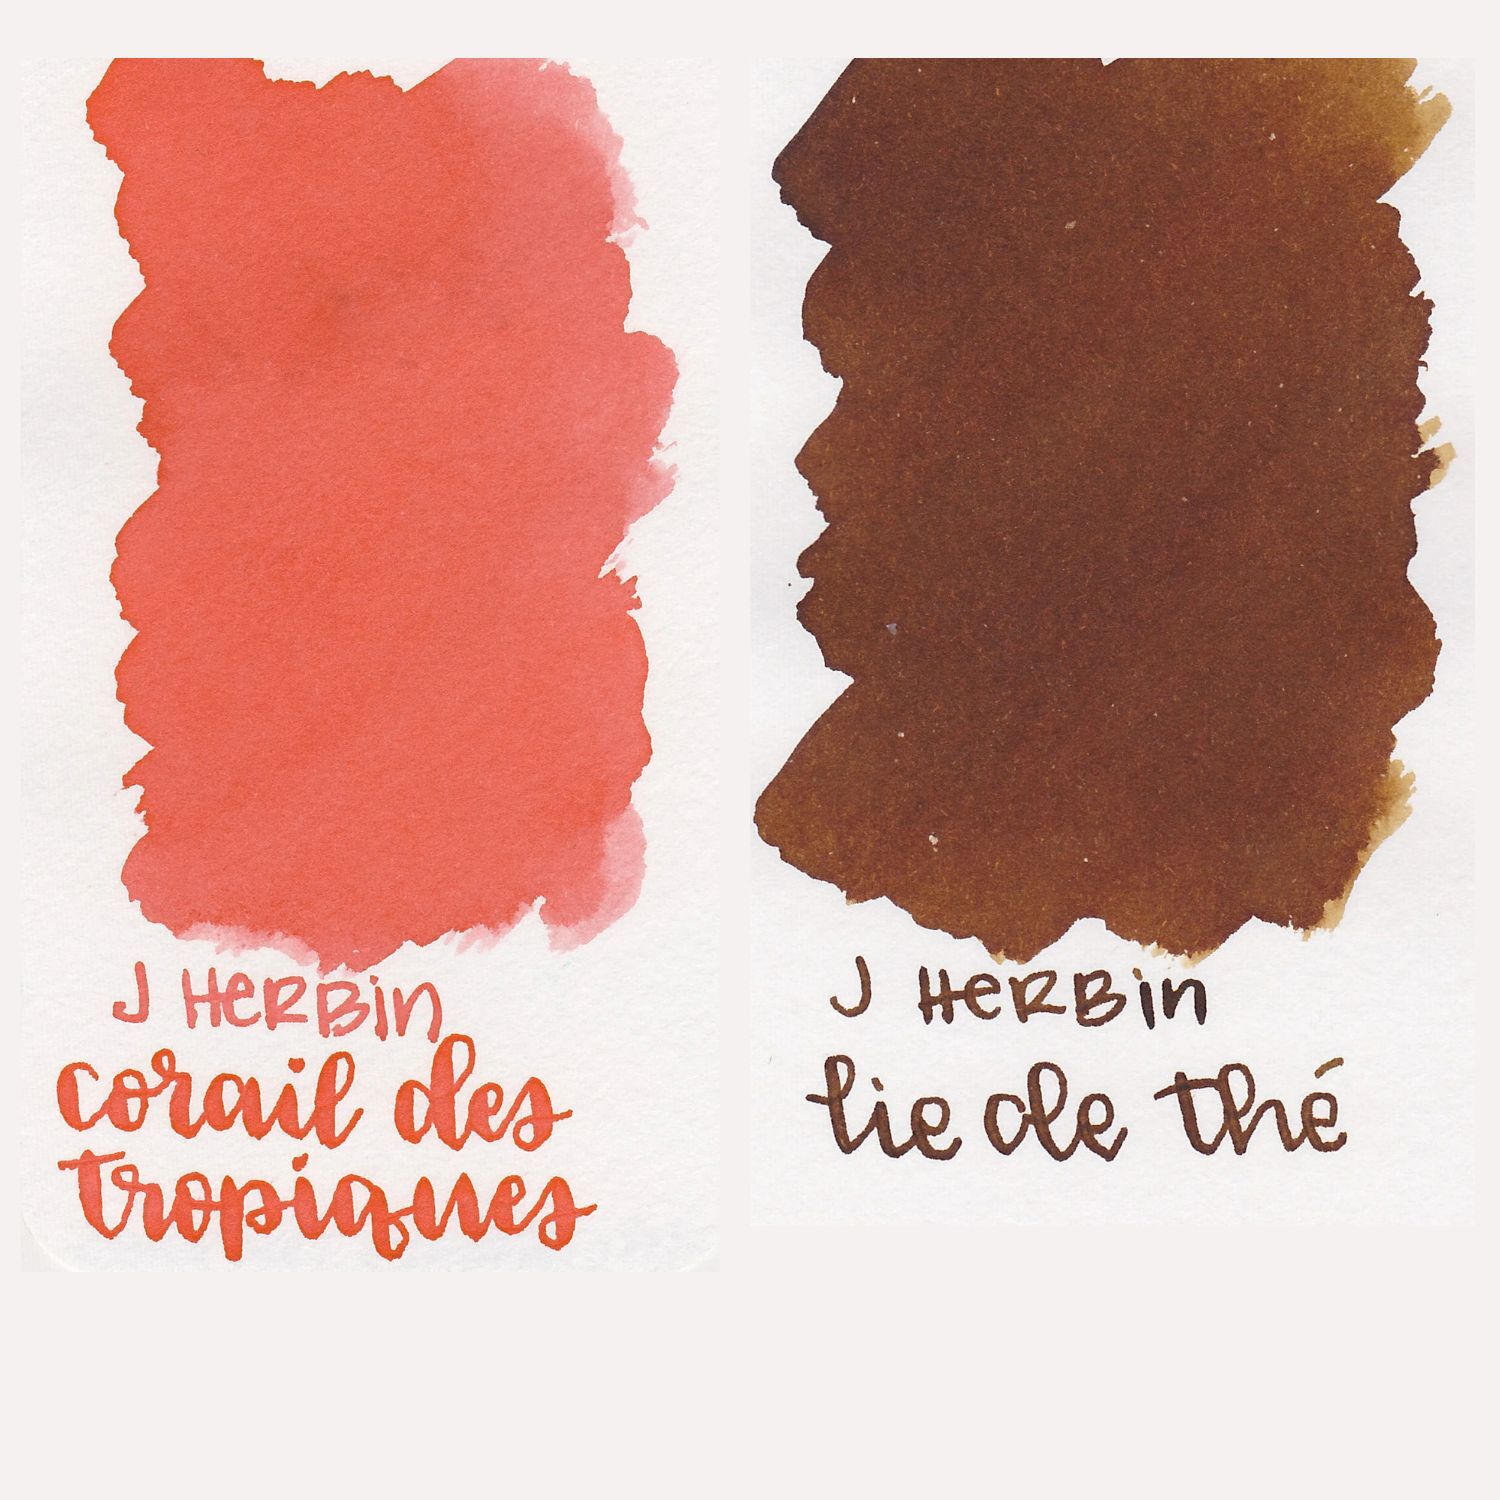 J HERBin
corail des
tropiques
J HERBin
lie de thé